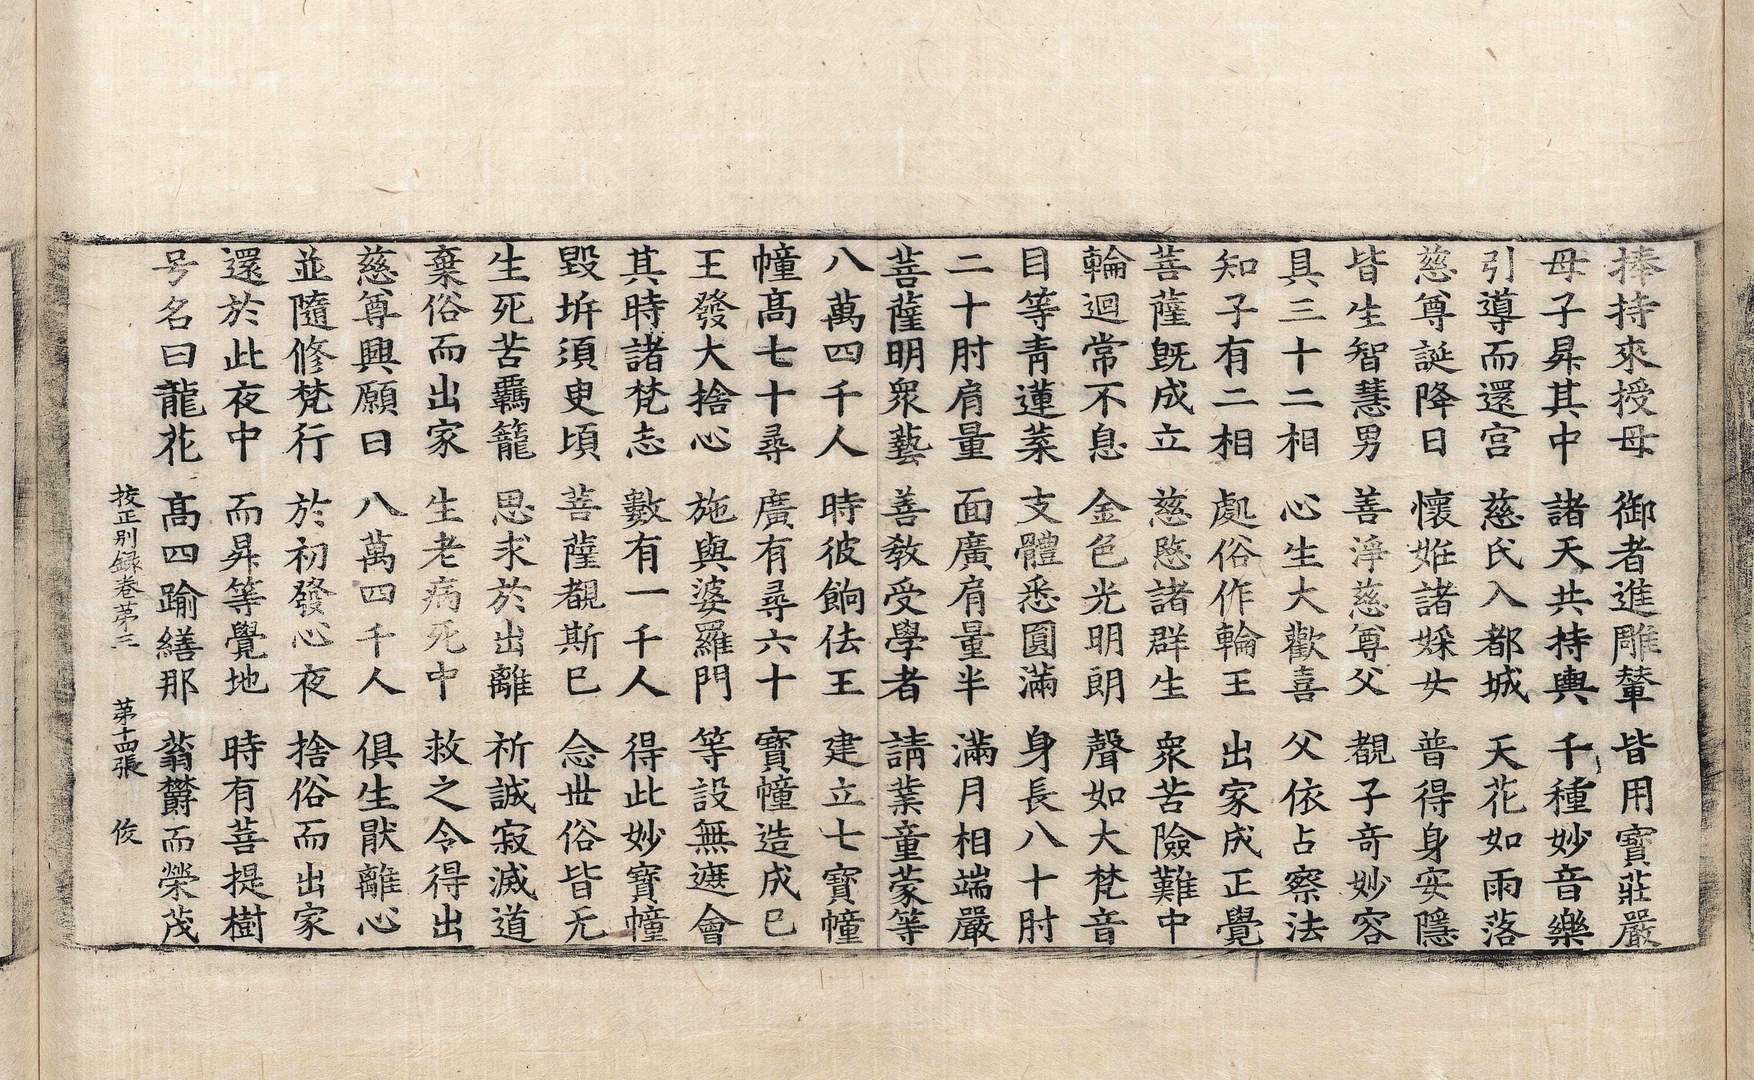 捧持來授母 御者進雕輦 皆用寶莊嚴
母子昇其中 諸天共持輿 千種妙音樂
引導而還宮 慈氏入都城 天花如雨落
慈尊誕降日 懷姙諸婇女 普得身安隱
皆生智慧男 善淨慈尊父 覩子奇妙容
具三十二相 心生大歡喜 父依占察法
知子有二相 處俗作輪王 出家成正覺
菩薩旣成立 慈愍諸群生 衆苦險難中
輪迴常不息 金色光明朗 聲如大梵音
目等靑蓮葉 支體悉圓滿 身長八十肘
二十肘肩量 面廣肩量半 滿月相端嚴
菩薩明衆藝 善敎受學者 請業童蒙等
八萬四千人 時彼餉佉王 建立七寶幢
幢高七十尋 廣有尋六十 寶幢造成已
王發大捨心 施與婆羅門 等設無遮會
其時諸梵志 數有一千人 得此妙寶幢
毀坼須臾頃 菩薩覩斯已 念世俗皆无
生死苦羈籠 思求於出離 祈誠寂滅道
棄俗而出家 生老病死中 救之令得出
慈尊興願日 八萬四千人 俱生厭離心
並隨修梵行 於初發心夜 捨俗而出家
還於此夜中 而昇等覺地 時有菩提樹
号名曰龍花 高四踰繕那 蓊欝而榮茂
挍正別録卷苐三 苐十四張 俊